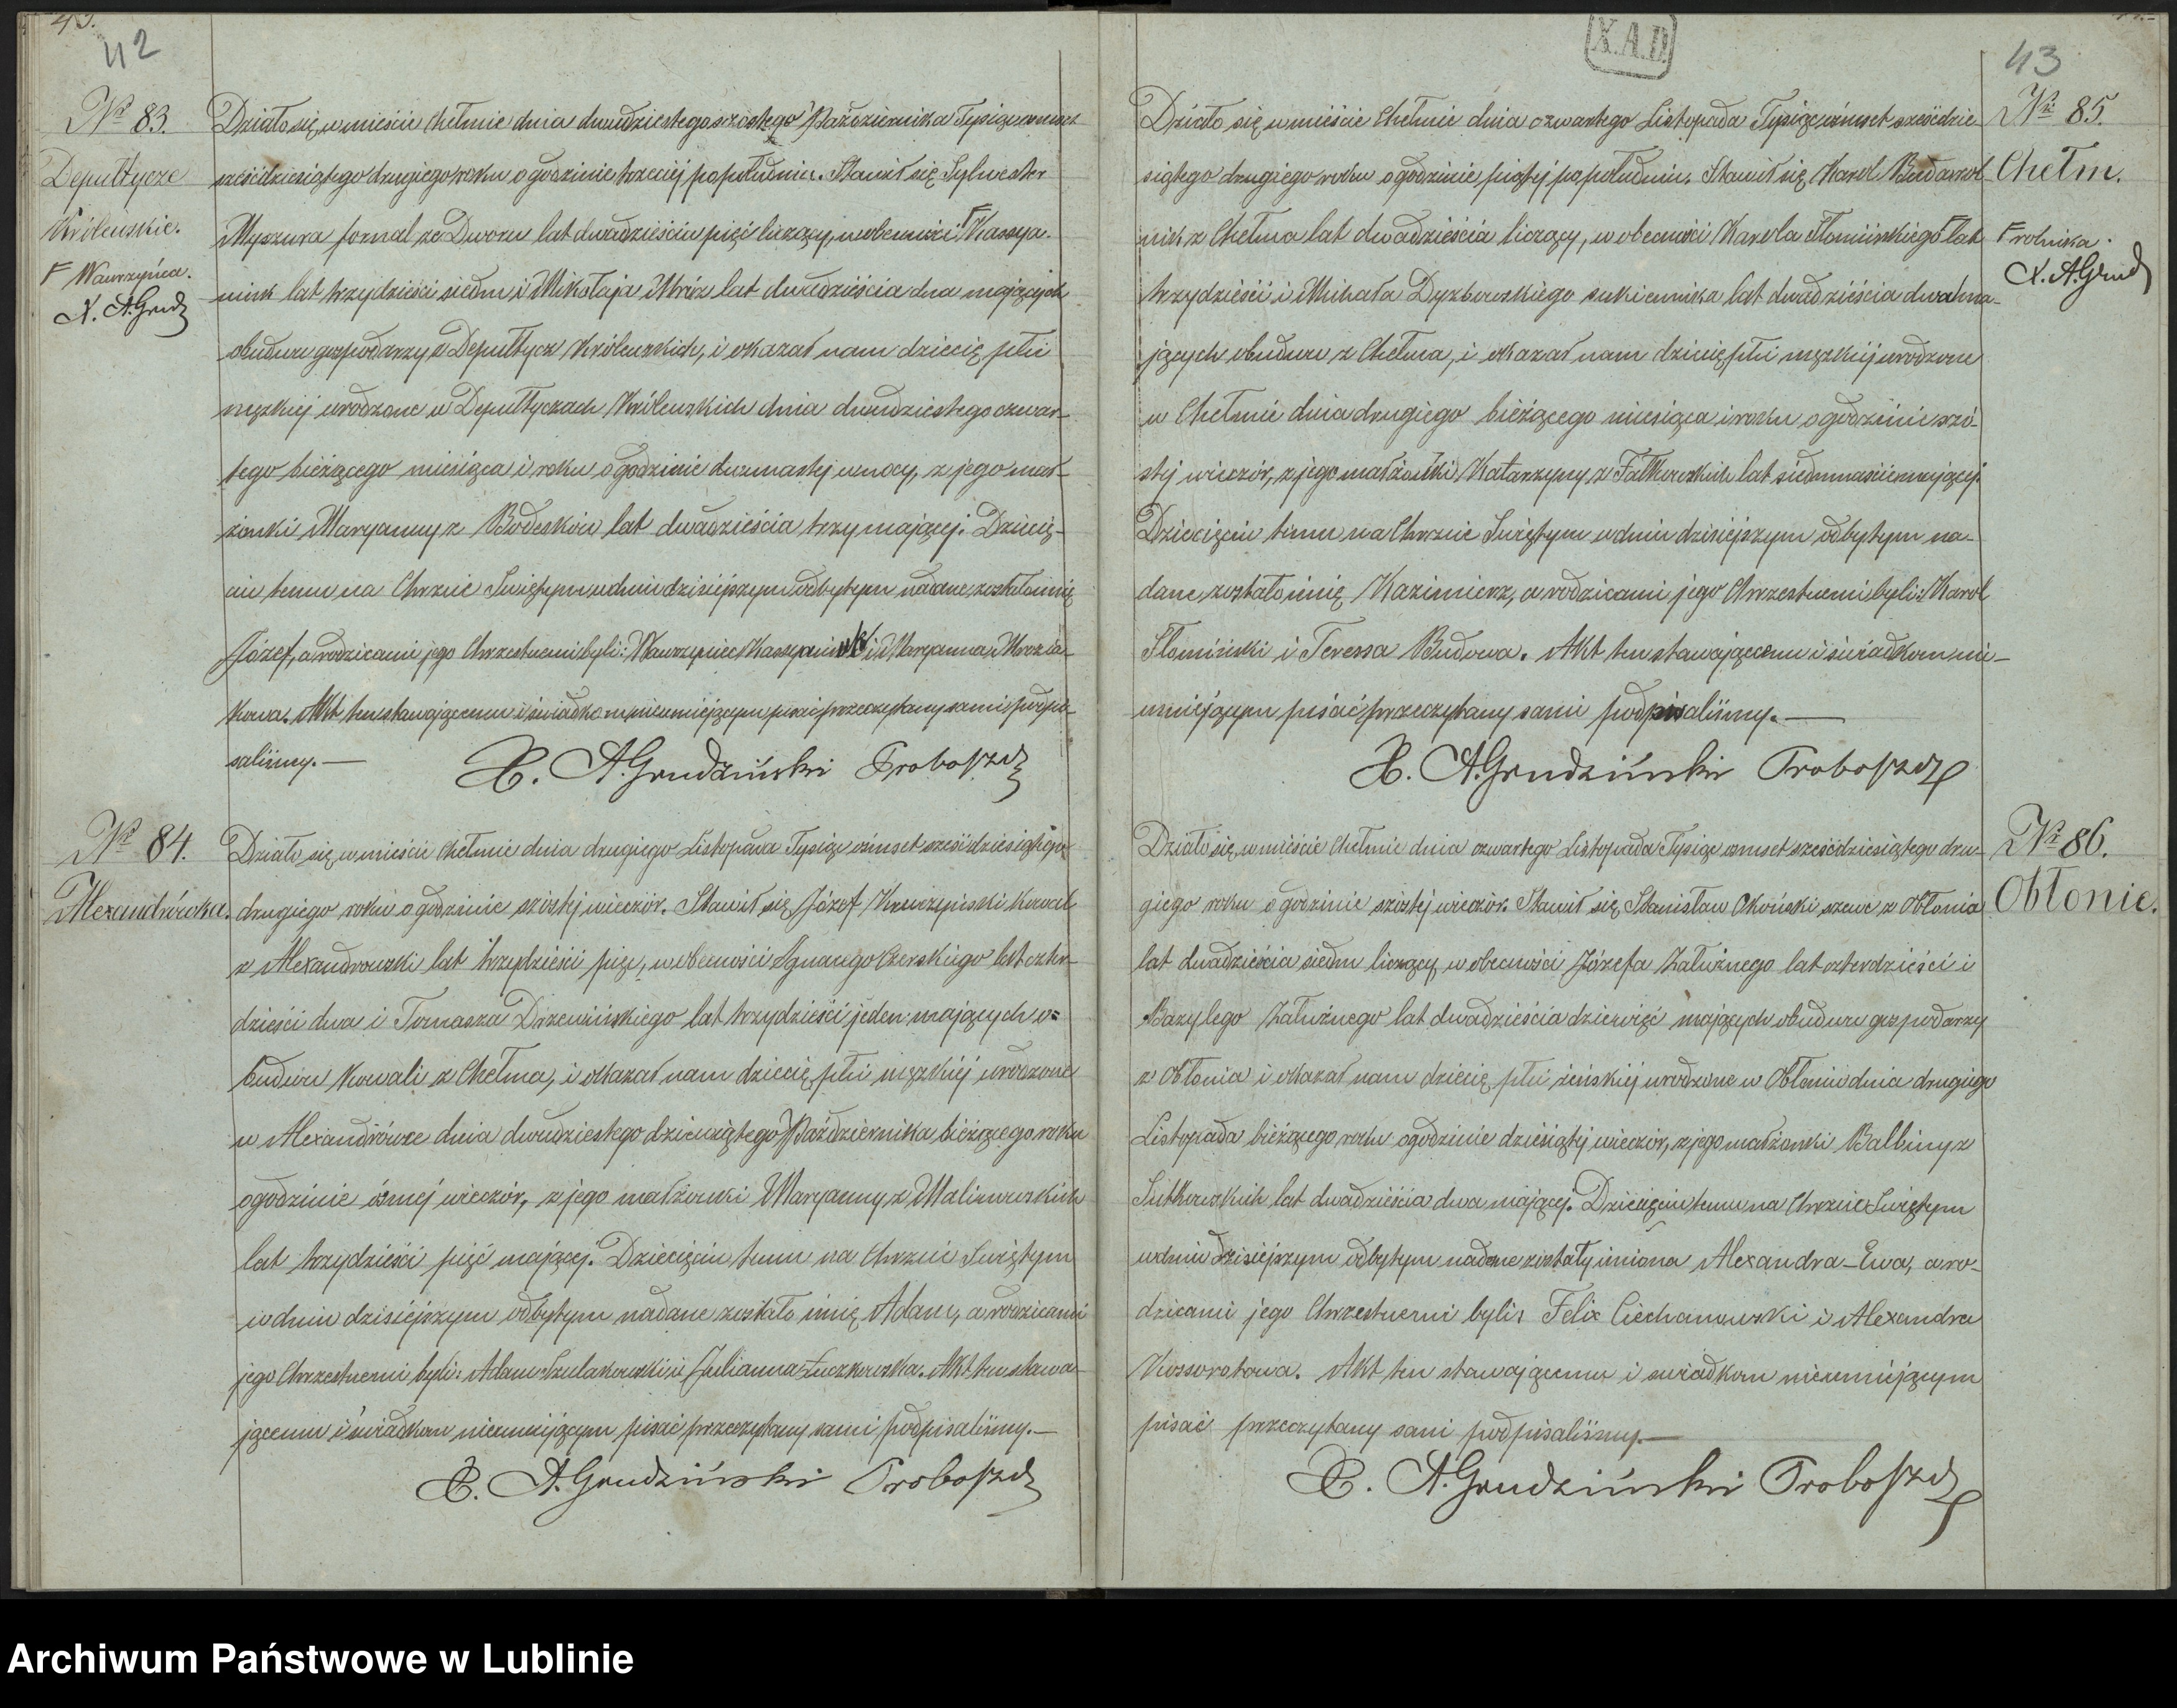 42
Nr 83.
Depułtycze
Królewskie.
F Wawrzyńca.
X. A. Grudz
Działo się w mieście Chełmie dnia dwudziestego szóstego Października Tysiąc ośmset
sześćdziesiątego drugiego roku o godzinie trzeciej po południu. Stawił się Sylwester
Myszura fornal ze Dworu lat dwadzieścia pięć liczący, w obecności F Kassya-
niuk lat trzydzieści siedm i Mikołaja Mróz lat dwadzieścia dwa mających
obudwu gospodarzy z Depułtycz Królewskich, i okazał nam dziecię płci
męzkiej urodzone w Depułtyczach Królewskich dnia dwudziestego czwar-
tego bieżącego miesiąca i roku o godzinie dwunastej w nocy, z jego mał-
żonki Maryanny z Bodesków lat dwadzieścia trzy mającej. Dziecię-
ciu temu na Chrzcie Świętym w dniu dzisiejszym odbytym nadane zostało imię
Józef, a rodzicami jego Chrzestnemi byli: Wawrzyniec Kassyaniuk i Maryanna Mrozia-
kowa. Akt ten stawającemu i świadkom nieumiejącym pisać przeczytany sami podpi-
saliśmy.—
X. A. Grudziński Proboszcz
Nr 84.
Alexandrówka.
Działo się w mieście Chełmie dnia drugiego Listopada Tysiąc ośmset sześćdziesiątego
drugiego roku o godzinie szóstej wieczór. Stawił się Józef Krawczyński kowal
z Alexandrowki lat trzydzieści pięć, w obecności Ignacego Czerskiego lat czter-
dzieści dwa i Tomasza Drzewińskiego lat trzydzieści jeden mających o=
budwu kowali z Chełma, i okazał nam dziecię płci męzkiej urodzone
w Alexandrówce dnia dwudziestego dziewiątego Października bieżącego roku
o godzinie ósmej wieczór, z jego małżonki Maryanny z Malinowskich
lat trzydzieści pięć mającej. Dziecięciu temu na Chrzcie Świętym
w dniu dzisiejszym odbytym nadane zostało imię Adam, a rodzicami
jego Chrzestnemi byli: Adam Szulakowski i Julianna Łuczkowska. Akt ten stawa-
jącemu i świadkom nieumiejącym pisać przeczytany sami podpisaliśmy.—
X. A. Grudziński Proboszcz
X.A.D.
43
Nr 85.
Chełm.
F rolnika.
X. A. Grudz
Działo się w mieście Chełmie dnia czwartego Listopada Tysiąc ośmset sześćdzie-
siątego drugiego roku o godzinie piątej po południu. Stawił się Karol Bud
z Chełma lat dwadzieścia liczący, w obecności Karola Słomińskiego F lat
trzydzieści i Michała Dyzbowskiego sukiennika lat dwadzieścia dwa ma-
jących obudwu z Chełma, i okazał nam dziecię płci męzkiej urodzone
w Chełmie dnia drugiego bieżącego miesiąca i roku o godzinie szó-
stej wieczór, z jego małżonki Katarzyny z Fałkowskich lat siedmnaście mającej.
Dziecięciu temu na Chrzcie Świętym w dniu dzisiejszym odbytym na-
dane zostało imię Kazimierz, a rodzicami jego Chrzestnemi byli: Karol
Słomiński i Teressa Budowa. Akt ten stawającemu i świadkom nie-
umiejącym pisać przeczytany sami podpisaliśmy.—
X. A. Grudziński Proboszcz
Nr 86.
Obłonie.
Działo się w mieście Chełmie dnia czwartego Listopada Tysiąc ośmset sześćdziesiątego dru-
giego roku o godzinie szóstej wieczór. Stawił się Stanisław Okoński szewc z Obłonia
lat dwadzieścia siedm liczący, w obecności Józefa Załużnego lat czterdzieści i
Bazylego Załużnego lat dwadzieścia dziewięć mających obudwu gospodarzy
z Obłonia i okazał nam dziecię płci żeńskiej urodzone w Obłoniu dnia drugiego
Listopada bieżącego roku o godzinie dziesiątej wieczór, z jego małżonki Balbiny z
Sutkowskich lat dwadzieścia dwa mającej. Dziecięciu temu na Chrzcie Świętym
w dniu dzisiejszym odbytym nadane zostały imiona Alexandra–Ewa, a ro-
dzicami jego Chrzestnemi byli: Felix Ciechanowski i Alexandra
Kossorotowa. Akt ten stawającemu i świadkom nieumiejącym
pisać przeczytany sami podpisaliśmy.—
X. A. Grudziński Proboszcz
Archiwum Państwowe w Lublinie